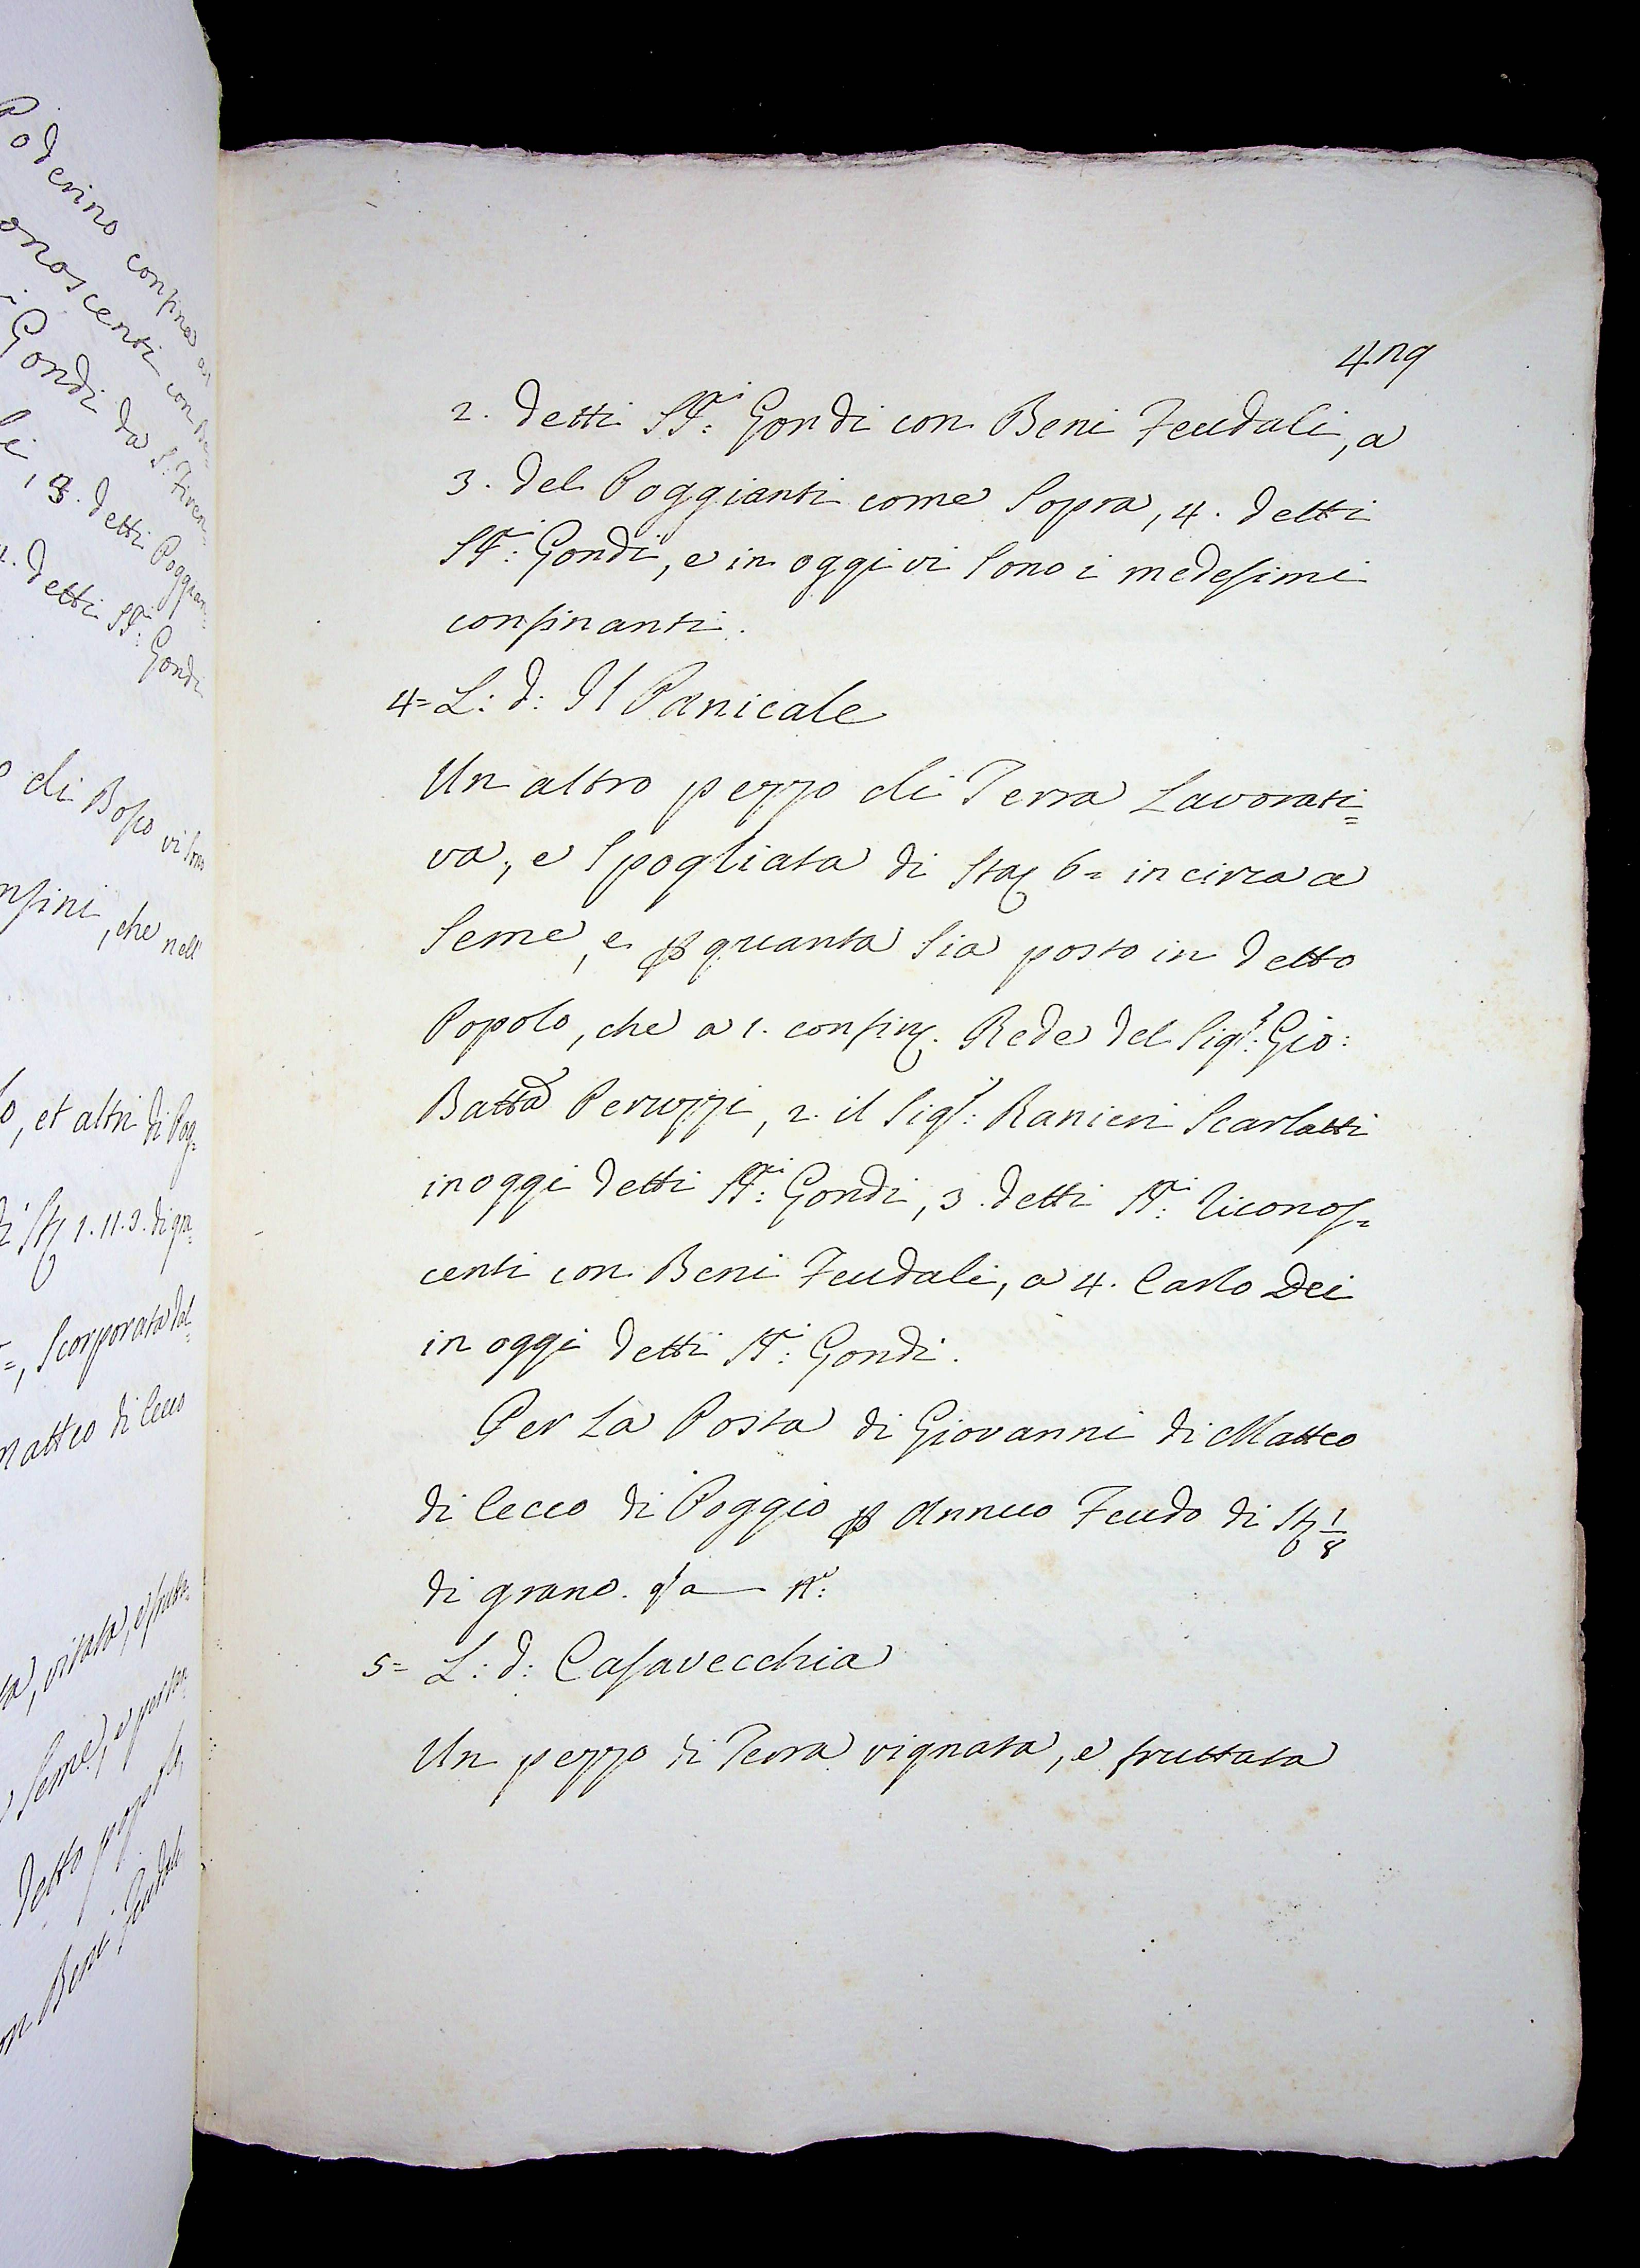 429
2. detti SS.ri Gondi con Beni Feudali, a
3. del Poggianti come Sopra, 4. detti
SS.ri: Gondi, e in oggi vi Sono i medesimi
confinanti.
4= L: d: Il Panicale
Un altro pezzo di Terra Lavorati=
va, e Spogliata di Sta 6= in circa a
Seme, e p quanta Sia posto in detto
Popolo, che a 1. confin. Rede del Sig.r: Gio:
Batta Peruzzi, 2. il Sig.r: Ranieri Scarlatti
in oggi detti SS.ri: Gondi, 3. detti SS.ri: Riconos=
centi con Beni Feudali, a 4. Carlo Dei
in oggi detti SS.ri: Gondi.
Per La Posta di Giovanni di Matteo
di Cecco di Poggio p Annuo Feudo di St 1/8
di grano.
5= L: d: Casavecchia
Un pezzo di Terra vignata, e fruttata
Poderino confina a
onoscenti con Be=
i Gondi da S. Firen=
li, 3. detti Poggian=
4. detti SS.ri: Gondi
o di Bosco vi Sono
nfini, che nell'
o, et altri di Pog=
di St 1.11.3. di gra=
=, Scorporata dal=
Matteo di Cecco
ta, vitata, e frutt=
Seme, e posto
detto popolo
on Beni Feudali